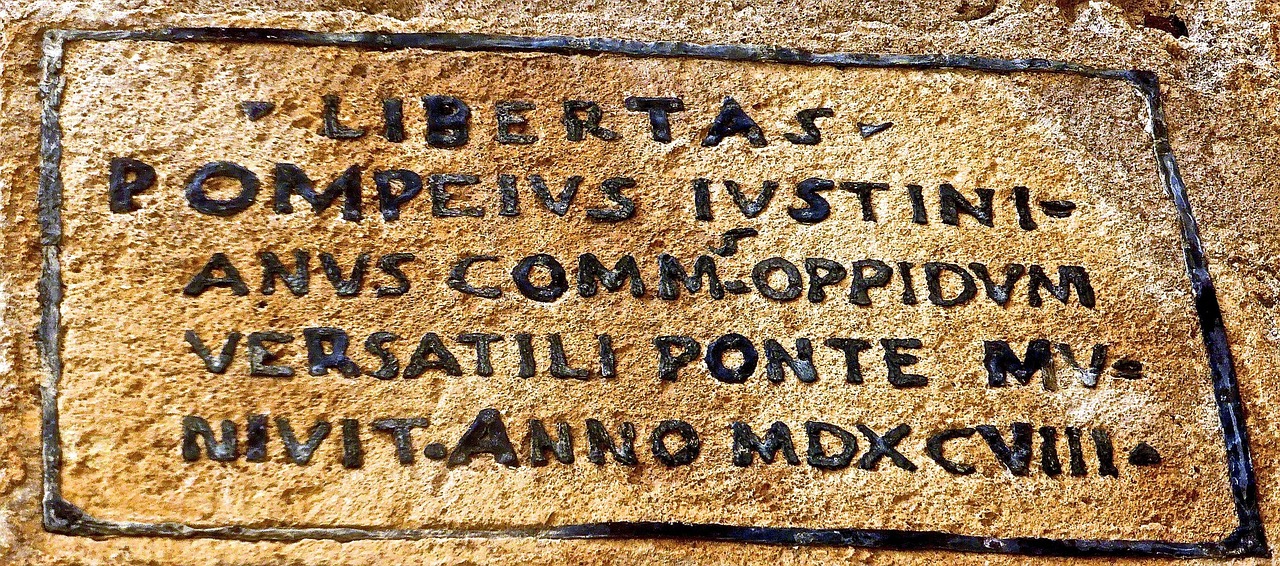 LIBERTAS
POMPEIVS IVSTINI-
ANVS COMMS-OPPIDVM
VERSATILI PONTE MV-
NIVIT. ANNO MDXCVIII.